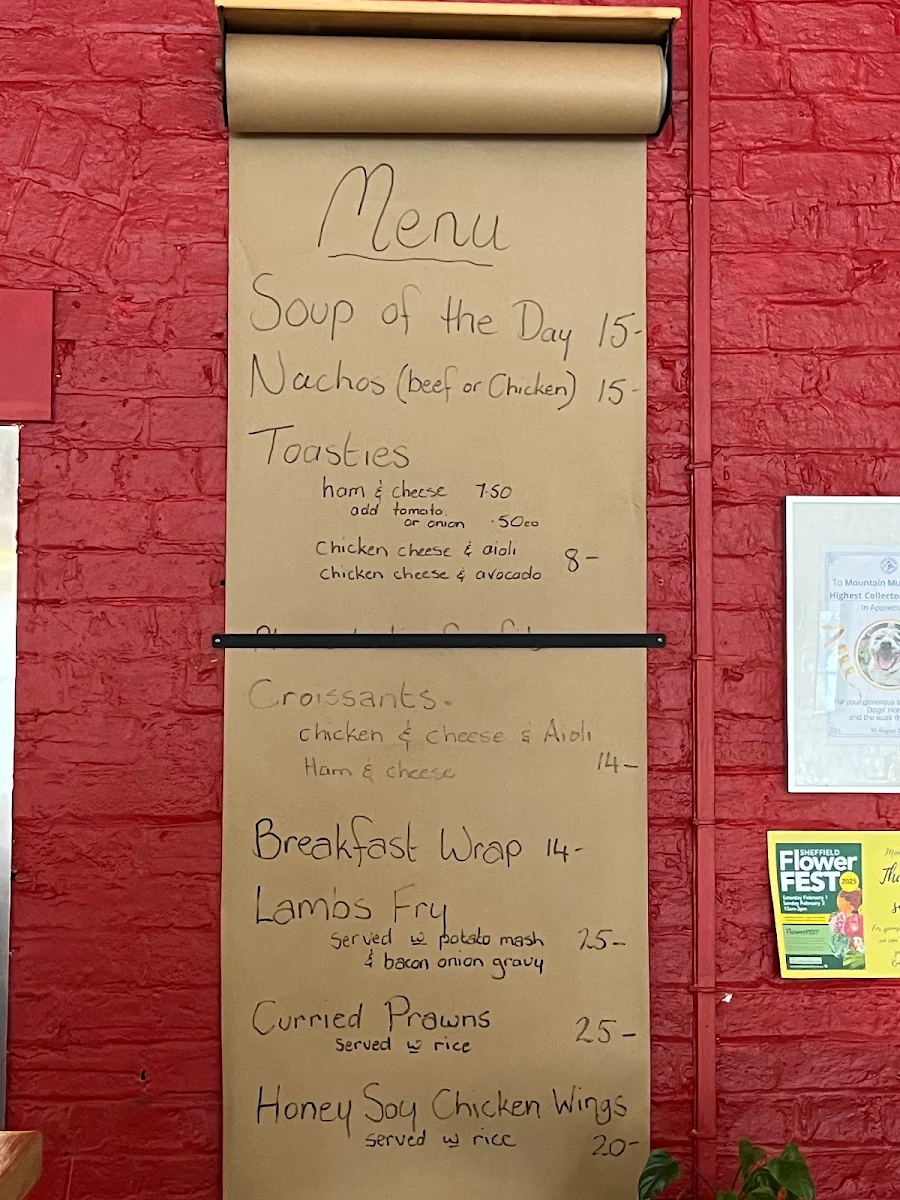 Menu
Soup of the Day 15-
Nachos (beef or Chicken) 15-
Toasties
ham & cheese 7.50
add tomato
or onion .50co
Chicken cheese & aioli
8-
Chicken cheese & avocado
Croissants.
chicken & cheese & Aioli
Ham & cheese 14-
Breakfast Wrap 14-
Lambs Fry
Served w potato mash 25-
& bacon onion gravy
Curried Prawns
Served w rice 25-
Honey Soy Chicken Wings
Served w rice 20-
To Mountain Mu
Highest Collecto
In Apprecia
For your generous s
Dogs' Hom
and the work th
30 August
SHEFFIELD
Flower
FEST
2025
Saturday February 1
Sunday February 2
10am-3pm
FlowerFEST
Tha